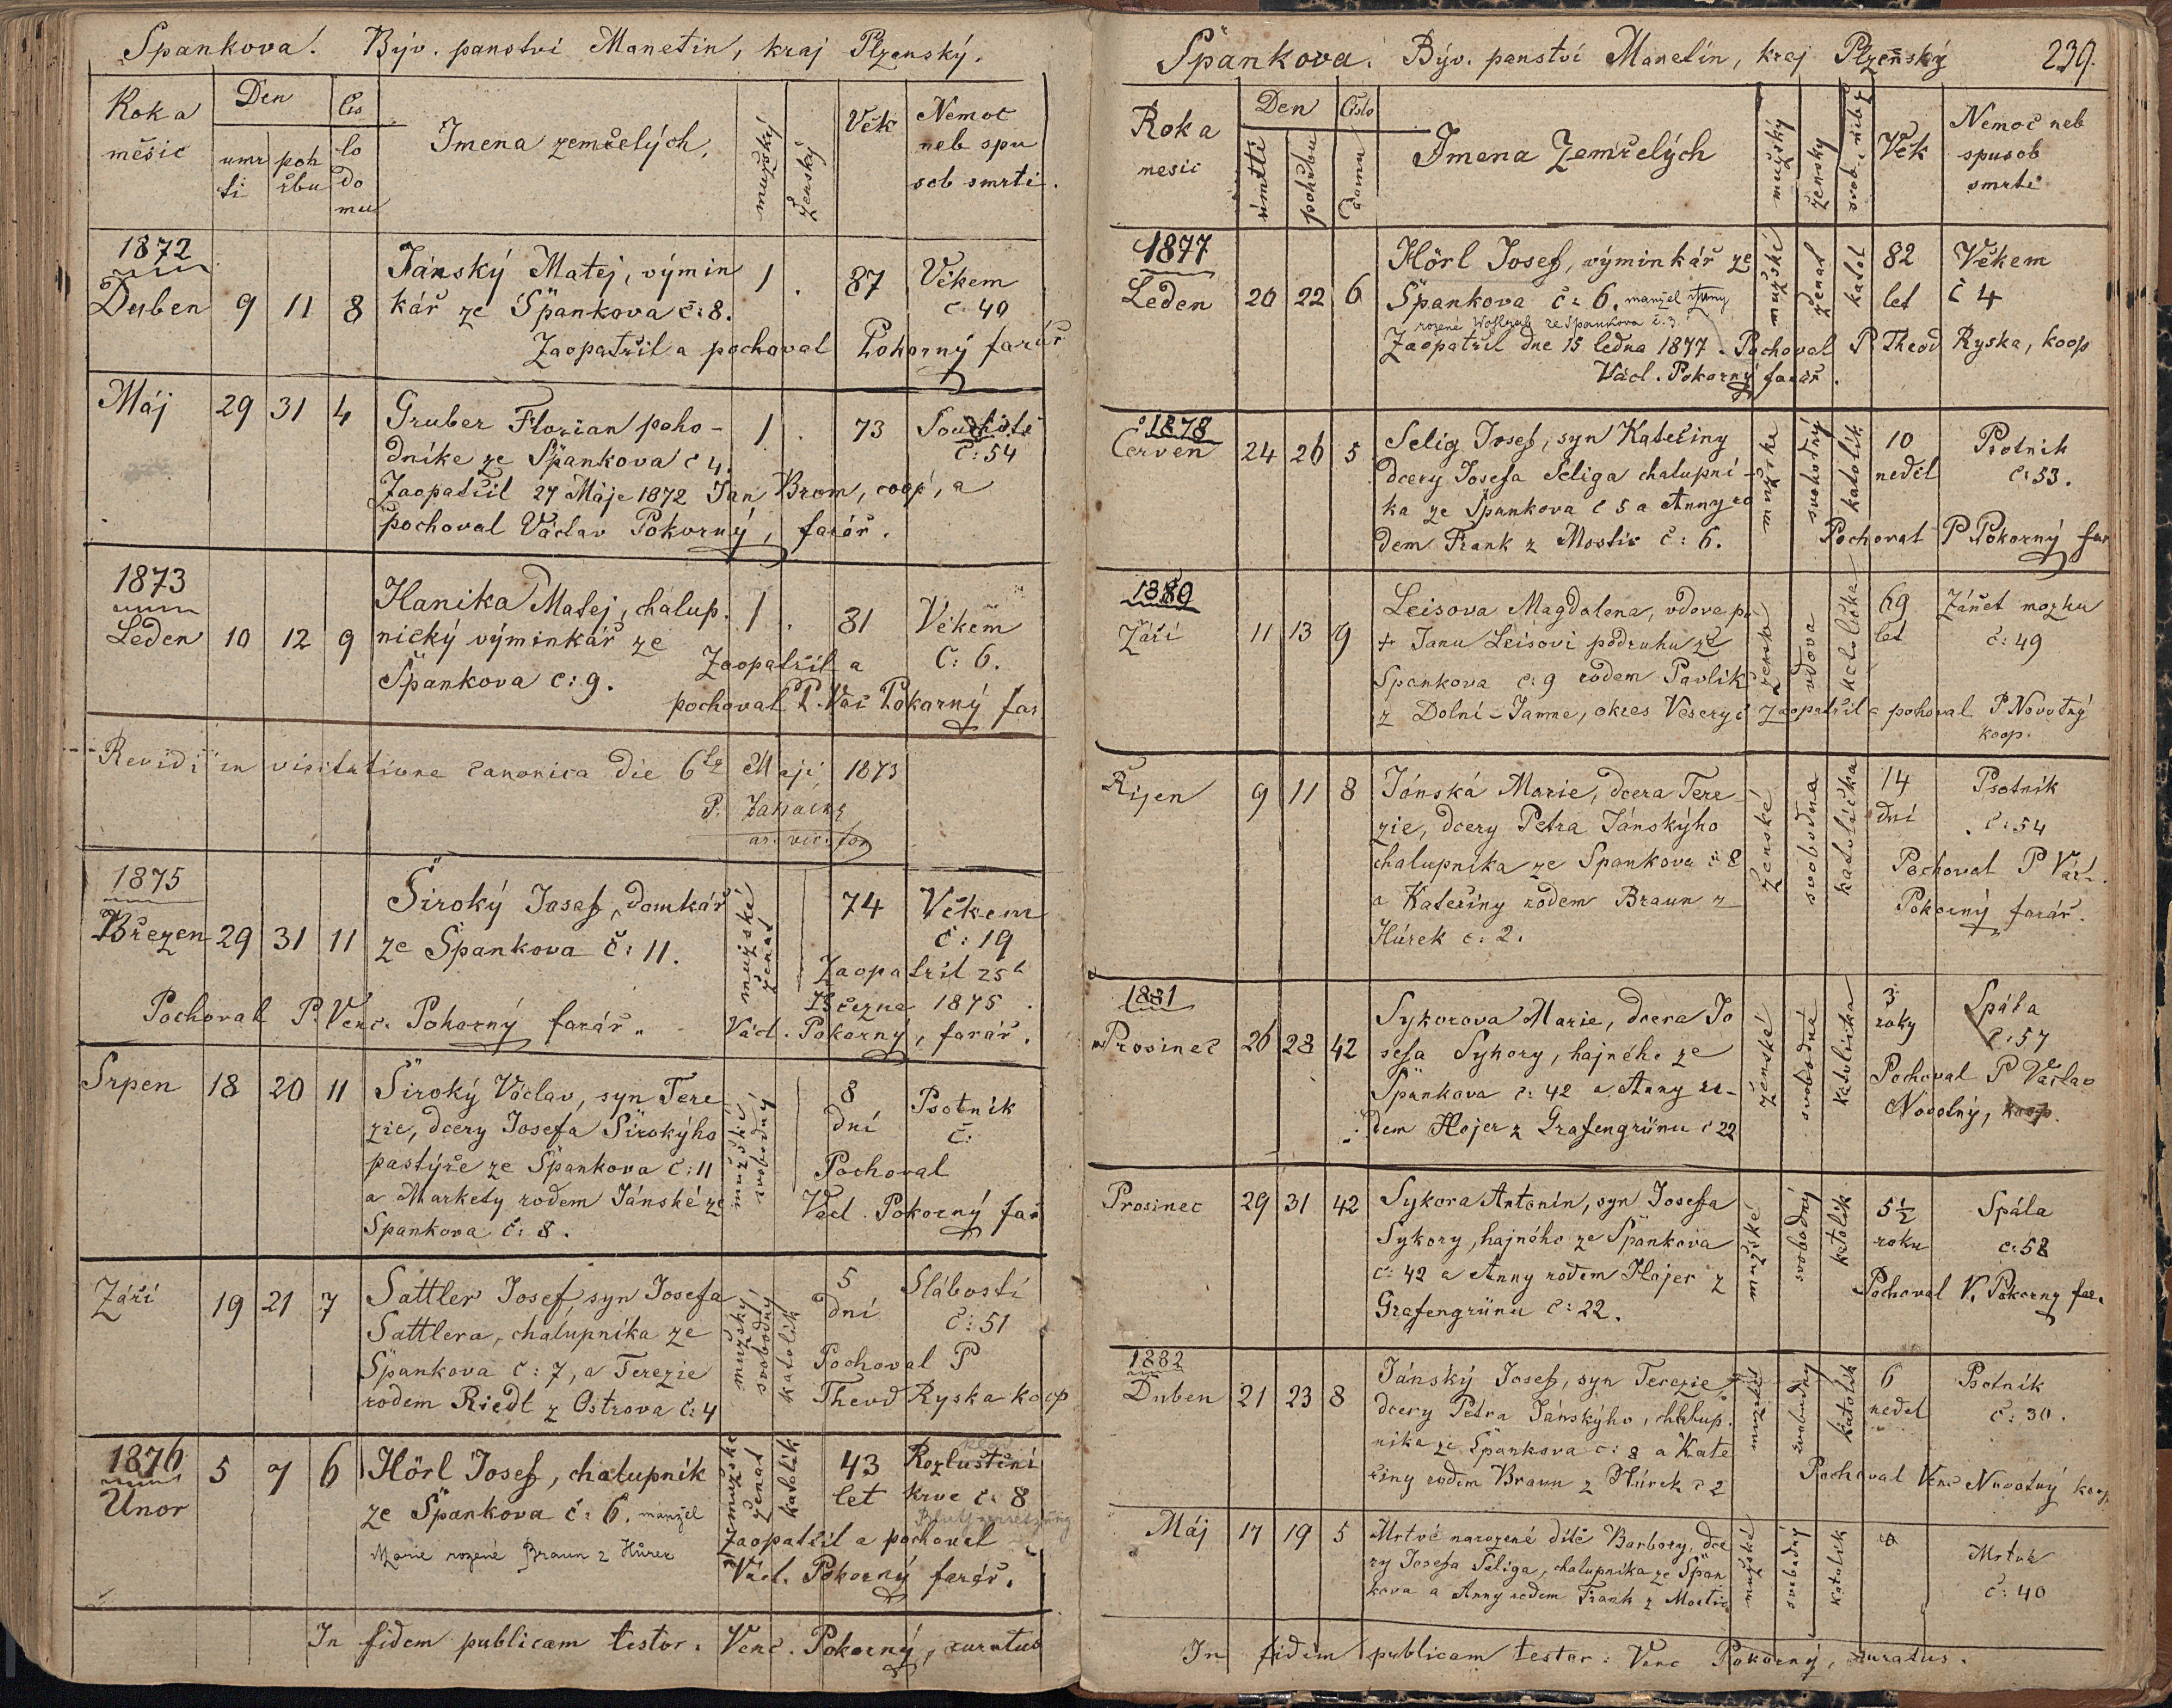 Špankova. Býv. panství Manetin, kraj Plzenský.
Rok a měsíc
Den
umrtí
pohřbu
Čislo domu
Imena zemřelých.
mužský
ženský
Věk
Nemoc
neb spu
sob smrti.
1872
Duben 9 11 8
Jánský Matej, výmin
kář ze Špankova č: 8.
1 . 87 Věkem
č. 49
Zaopatřil a pochoval Pokorný farář
Máj 29 31 4
Gruber Florian poho-
dníke ze Špankova č 4.
1 . 73
č: 54
Zaopatřil 27 Máje 1872 Jan Brom, coop, a
pochoval Václav Pokorný, farář.
1873
Leden 10 12 9
Hanika Matej, chalup.
nický výminkář ze
Špankova č: 9.
1 . 81 Věkem
č: 6.
Zaopatřil a
pochoval P. Vác Pokorný far
Revidi in visitatione canonica die 6 Maji 1873
P.
1875
Březen 29 31 11
Široký Josef, domkář
ze Špankova č: 11.
mužské
ženat
74 Věkem
č: 19
Zaopatřil 25
Března 1875
Václ. Pokorny, farář.
Pochoval P. Venc. Pokorný farář.
Srpen 18 20 11
Široký Václav, syn Tere
zie, dcery Josefa Širokýho
pastýře ze Špankova č: 11
a Markety rodem Jánské ze
Spankova č: 8.
mužské
svobodný
8
dní
Psotnik
č:
Pochoval
Václ. Pokorný far
Září 19 21 7
Sattler Josef, syn Josefa
Sattlera, chalupníka ze
Špankova č: 7, a Terezie
rodem Riedl z Ostrova č: 4
mužský
svobodný
katolik
5
dní
Slábostí
č: 51
Pochoval P
Theod Ryska koop
1876
Unor 5 7 6
Hörl Josef, chalupník
ze Špankova č: 6. manžel
Marie rozené Braun z Hůrek
mužské
ženat
katolik
43
let
Rozluštění
krve č. 8
Blutzersetzung
Zaopatřil a pochoval
Václ. Pokorný farář.
In fidem publicam testor. Venc. Pokorný, curatus
Špankova. Býv. panství Manetín, kraj Plzeňský
239.
Rok a
mesic
Den
úmrtí
pohřbu
Číslo
domu
Imena Zemřelých
mužský
ženský
Věk
Nemoc neb
spusob
smrti
1877
Leden 20 22 6
Hörl Josef, výminkář ze
Špankova č: 6. manžel Anny
rozené ze Spankova č. 3.
mužské
ženat
katol
82
let
Věkem
č 4
Zaopatřil dne 15 ledna 1877. Pochoval P. Theod Ryska, koop
Václ. Pokorný farář.
1878
Červen 24 26 5
Selig Josef, syn Kateřiny
dcery Josefa Seliga chalupní-
ka ze Špankova č 5 a Anny ro
dem Frank z Mostic č: 6.
mužské
svobodný
katolik
10
neděl
Psotnik
č: 53.
Pochoval P Pokorný far
1880
Září 11 13 9
Leisova Magdalena, vdova po
+ Janu Leisovi podruhu ze
Spankova č: 9 rodem Pavlík
z Dolní-Jamne, okres
vdova
katolička
69
let
Zánět mozku
č: 49
Zaopatřil a pohoval P Novotný
koop.
Říjen 9 11 8
Jánská Marie, dcera Tere
zie, dcery Petra Jánskýho
chalupníka ze Spankova č 8
a Kateřiny rodem Braun z
Húrek č: 2.
ženské
svobodna
katolička
14
dní
Psotnik
č: 54
Pochoval P Václ.
Pokorný farář.
1881
Prosinec 26 28 42
Sykorova Marie, dcera Jo
sefa Sykory, hajného ze
Špankova č: 42 a Anny ro-
dem Hojer z Grafengrünu č 22
ženské
svobodná
katolička
3
roky
Spála
č: 57
Pochoval P Vaclav
Novotný, koop.
Prosinec 29 31 42
Sykora Antonín, syn Josefa
Sykory, hajného ze Špankova
č: 42 a Anny rodem Hojer z
Grafengrünu č: 22.
mužské
svobodný
katolik
5 1/2
roku
Spála
č: 58
Pochoval V. Pokorny far.
1882
Duben 21 23 8
Jánský Josef, syn Terezie,
dcery Petra Jánskýho, chalup.
nika ze Špankova č: 8 a Kate
řiny rodem Braun z Húrek č 2
mužské
svobodný
katolik
6
neděl
Psotnik
č: 30.
Pochoval Venc Novotný koop
Máj 17 19 5
Mrtvé narozené dítě Barbory, dce
ry Josefa Seliga, chalupníka ze Špan
kova a Anny rodem Frank z Mostic
mužské
svobodný
katolik
č: 40
In fidem publicam testor: Venc Pokorný, curatus.